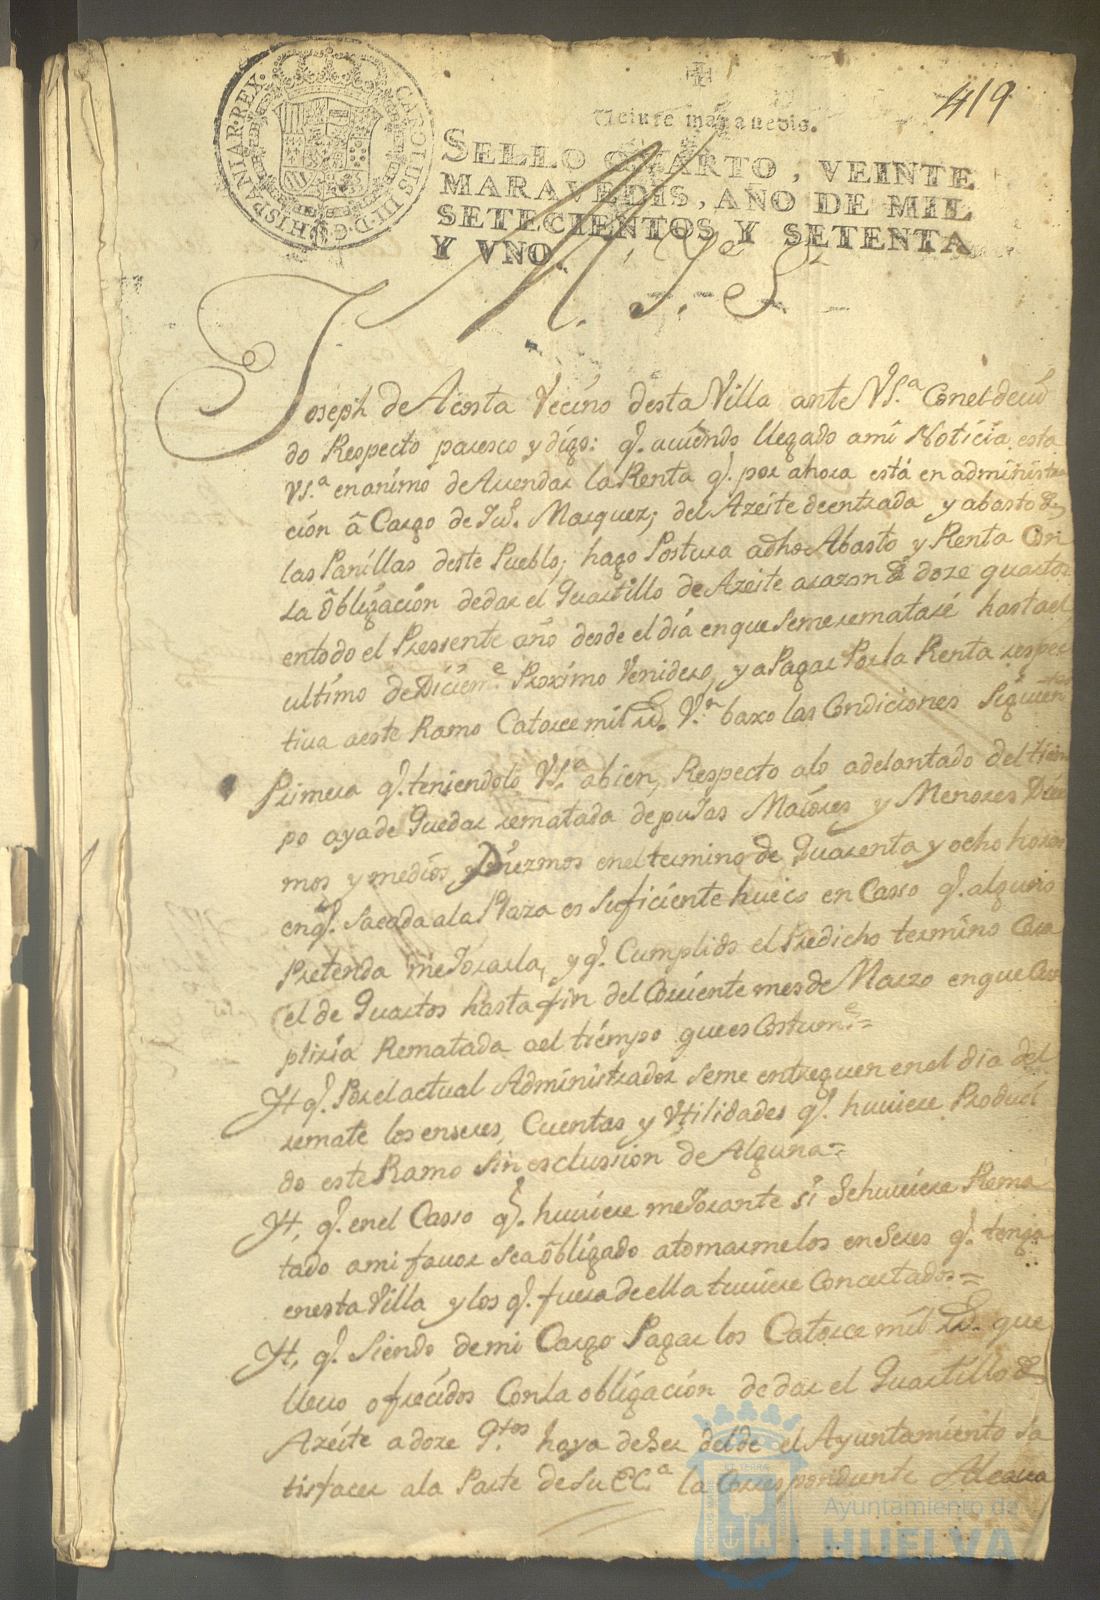 419
CAROLUS III D.G. HISPANIAR. REX.
Veinte maravedis.
SELLO QUARTO, VEINTE
MARAVEDIS, AÑO DE MIL
SETECIENTOS Y SETENTA
Y VNO.
M. Yᵉ Sʳ
Joseph de Acosta Vecino desta Villa ante VSª Conel devi
do Respecto paresco y digo: q̃. aviendo llegado ami Noticia esta
VSª en animo de Arendar la Renta q̃. por ahora está en administra
ción â Cargo de Juº. Marquez; del Azeite de entrada y abasto de
las Panillas deste Pueblo; hago Postura adho Abasto y Renta Con
la ôbligación dedar el Quartillo de Azeite arazon de doze quartos
entodo el Pressente año desde el diá en que seme rematare hasta el
ultimo de Diciemᵉ Proximo Venidero, y a Pagar Por la Renta respec
tiva aeste Ramo Catorce mil rˢ. Vⁿ baxo las Condiciones Siguien
Primera q̃. teniendolo VSª abien, Respecto alo adelantado del tiem
po aya de Quedar rematada de pujas Maiores y Menores Diez
mos y medios Diezmos en el termino de Quarenta y ocho horas
enq̃. sacada ala Plaza es suficiente hueco en Casso q̃. alguno
Pretenda mejorarla, y q̃. Cumplido el Predicho termino Corra
el de Quartos hasta fin del Corriente mes de Marzo en que Cum
pliria Rematada ael tiempo que es Costumᵉ=
Yt q̃. Por el actual Administrador seme entreguen en el dia del
remate los enseres, Cuentas y Vtilidades q̃. huviere Produci
do este Ramo sin esclussion de Alguna=
Yt, q̃. en el Casso q̃. huviere mejorante si Sehuviere Rema
tado ami favor sea ôbligado atomarmelos enseres q̃. tenga
enesta Villa y los q̃. fuera de ella tuviere Concertados=
Yt, q̃. Siendo de mi Cargo Pagar los Catorce mil rˢ. que
llevo ofrecidos Conla obligación de dar el Quartillo de
Azeite adoze q.tos haya deser del de el Ayuntamiento sa
tisfacer ala Parte de Su ECª la Correspondiente Alcava
Ayuntamiento de
HUELVA